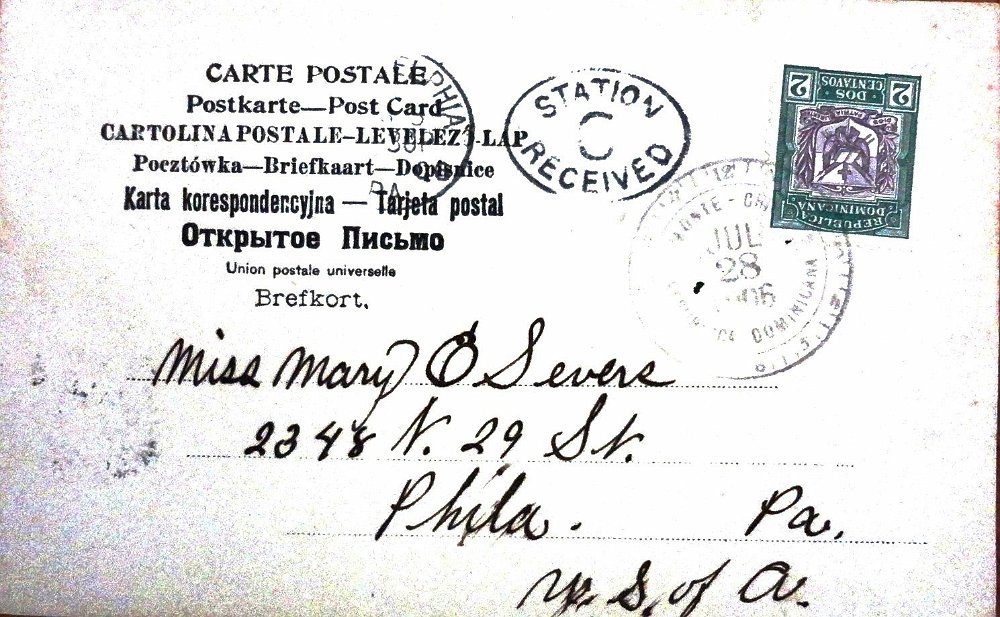 CARTE POSTALE
Postkarte—Post Card
CARTOLINA POSTALE–LEVELEZŐ-LAP
Pocztówka—Briefkaart—Dopisnice
Karta korespondencyjna — Tarjeta postal
Открытое Письмо
Union postale universelle
Brefkort.
STATION
C
RECEIVED
2 DOS CENTAVOS 2
DIOS PATRIA
REPUBLICA
DOMINICANA
JUL
28
DOMINICANA
ELPHIA
PA
Miss Mary O Severs
2348 N. 29 St.
Phila. Pa.
U. S. of A.